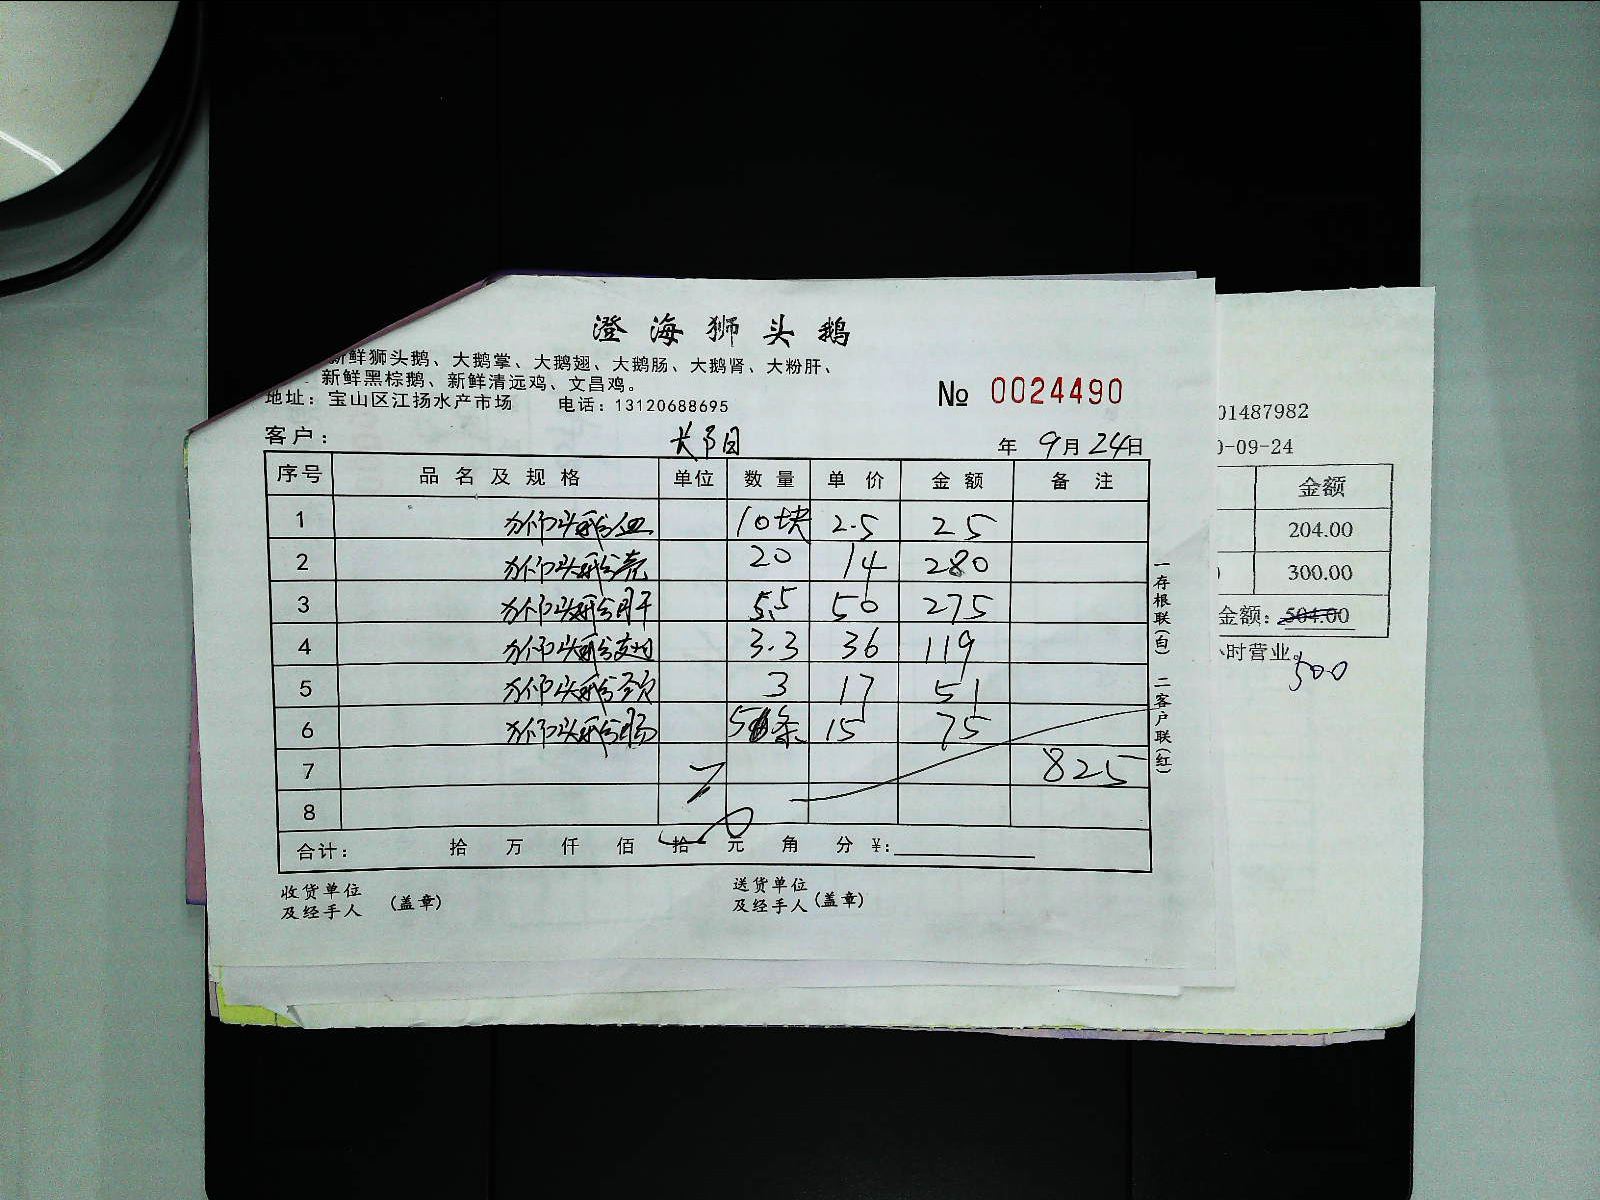 澄海狮头鹅
新鲜狮头鹅、大鹅掌、大鹅翅、大鹅肠、大鹅肾、大粉肝、
新鲜黑棕鹅、新鲜清远鸡、文昌鸡。
地址：宝山区江扬水产市场 电话：13120688695
№ 0024490
客户： 年 9月24日
序号 品名及规格 单位 数量 单价 金额 备注
1 狮头鹅血 10块 2.5 25
2 狮头鹅壳 20 14 280
3 狮头鹅肝 5.5 50 275
4 狮头鹅翅 3.3 36 119
5 狮头鹅 3 17 51
6 狮头鹅肠 5条 15 75
7 825
8
合计： 拾 万 仟 佰 拾 元 角 分 ¥：
收货单位
及经手人 (盖章)
送货单位
及经手人 (盖章)
一存根联(白) 二客户联(红)
01487982
0-09-24
金额
204.00
300.00
金额：504.00
小时营业。
500